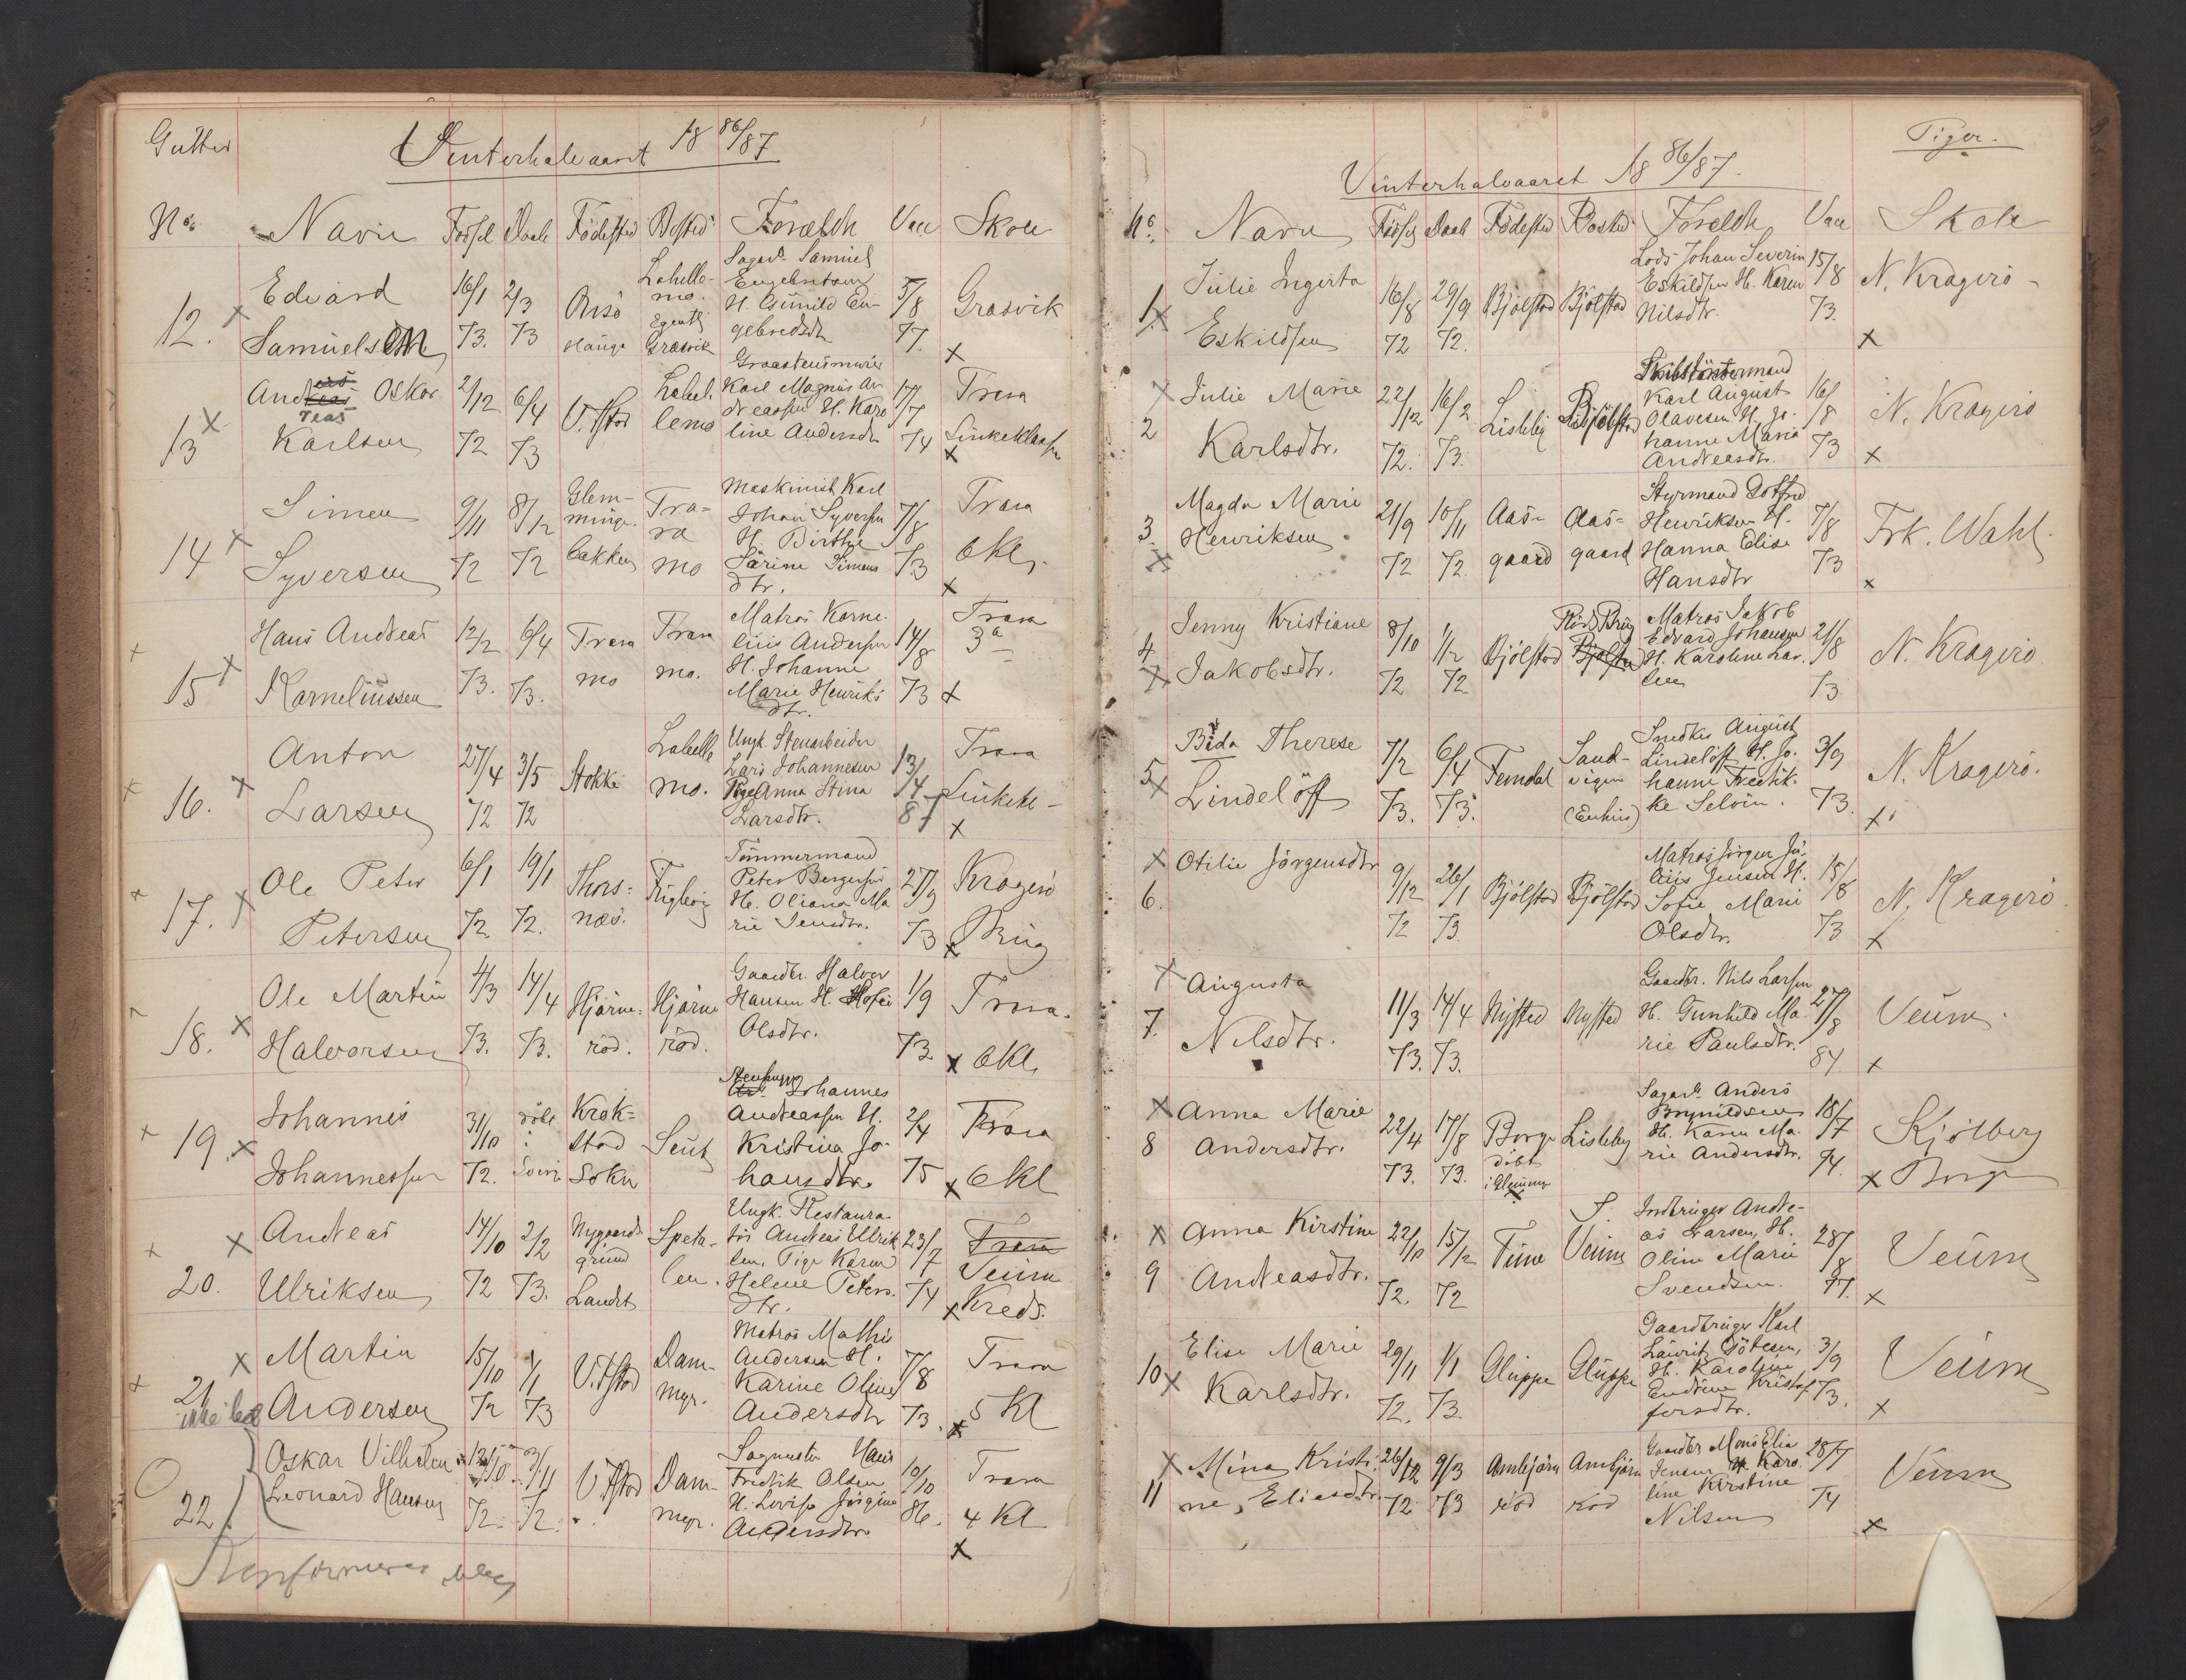 Gutter
Vinterhalvaaret 18 86/87
No. Navn Födsel Daab Födested Bosted Foreldre Vacc Skole
12. x Edvard Samuelsen 16/1 73. 2/3 73 Onsö Labelle- mo. Sagarb. Samuel H. Gunild En- gebredsdtr 5/8 77. Græsvik x
13 x Andreas Oskar Karlsen 2/12 72 6/4 73 V. Fstad Label. lemo Graastensmurer Karl Magnus An dreassen H. Karo line Andersdtr 17/7 74 Trara x
14 x Simen Syversen 9/11 72 8/12 72 Glem- minge- bakken Tra- ra mo Maskinist Karl Johan Syversen H. Birthe Sarine Simens dtr. 7/8 73 Trara 6 kl. x
15 x Hans Andreas Korneliussen 12/2 73. 6/4 73. Trara mo Trara mo. Matros Korne- lius Andersen H. Johanne Marie Henriks dtr. 14/8 73 Trara 3a x
16. x Anton Larsen 27/4 72 3/5 72 Stokke Labelle mo. Ungk. Stenarbeider Lars Johannesen Pige Anna Stina Larsdtr. 13/4 87 Trara x
17. x Ole Peter Petersen 6/1 72 19/1 72. Thors- næs. Tömmermand Peter Bergersen H. Oliana Ma rie Jensdtr. 27/9 73 Kragerö Brug x
18. x Ole Martin Halvorsen 4/3 73. 14/4 73. Hjörne- röd. Hjörne röd. Gaardbr. Halvor Hansen H. Sofie Olsdtr. 1/9 73 Trara. x 6 kl.
19. x Johannes Johannessen 31/10 72. döbt i Krok- stad Sokn Seut Johannes Andreassen H. Kristina Jo- hansdtr. 2/4 75 Trara x 6 kl
20. x Andreas Ulriksen 14/10 72 2/2 73. Nygaards grund Landet Speta- len. Ungk. Restaura- tör Andreas Ulrik sen. Pige Karen Helene Peters dtr. 23/7 74 Trara Veum x Kreds.
21 x Martin Andersen 15/10 72 1/1 73 V. Fstad Dam- myr. Matros Mathis Andersen H. Karine Oline Andersdtr 7/8 73. Trara 5 Kl x
22. Oskar Vilhelm Leonard Hansen 72. 3/11 72. V. Fstad Dam- myr. Sagmester Hans Fredrik Olsen H. Lovise Jörgine Andersdtr 10/10 86. Trara 4 Kl x
Konfirmeres
Piger.
Vinterhalvaaret 18 86/87.
No. Navn Födsel Daab Födested Bosted Foreldre Vacc Skole
1. x Julie Ingerta Eskildsen 16/8 72 29/9 72. Bjölstad Bjölstad Lods Johan Severin Eskildsen H. Karen Nilsdtr. 15/8 73. N. Kragerö x
2 x Julie Marie Karlsdtr. 22/12 72. 16/2 73. Lisleby Bjölstad Karl August Olavesen H. Jo- hanne Maria Andreasdtr. 16/8 73 N. Kragerö x
3. x Magda Marie Henriksen 21/9 72 10/11 72. Aas- gaard Aas- gaard Styrmand Gotfred Henriksen H. Hanna Elise Hansdtr 7/8 73 Frk. Wahl. x
4 x Jenny Kristiane Jakobsdtr. 8/10 72 1/12 72 Bjölstad Bjölstad Matros Jakob Edvard Johansen H. Karoline Lar- sen 21/8 73 N. Kragerö.
5 x Beda Therese Lindelöff 7/2 73. 6/4 73. Femdal Sand- vigen (Enhus) Snedker August Lindelöff H. Jo- hanne Fredrik- ke Selvin. 3/9 73. N. Kragerö. x
6. x Otilie Jörgensdtr 9/12 72 26/1 73 Bjölstad Bjölstad Matros Jörgen Ju- lius Jensen H. Sofie Marie Olsdtr. 15/8 73 N. Kragerö. x
7. x Augusta Nilsdtr. 11/3 73. 14/4 73. Nysted Nysted Gaardbr. Nils Larsen H. Gunhild Ma- rie Paulsdtr. 27/8 84 Veum. x
8 x Anna Marie Andersdtr. 22/4 73. 17/8 73. Borge döbt i Glemmen Lisleby Sagarb. Anders Brynildsen H. Karen Ma- rie Andersdtr. 18/7 74. Kjölberg x Borge
9 x Anna Kirstine Andreasdtr. 22/10 72. 15/12 72 Tune Veum Jordbruger Andre- as Larsen, H. Oline Marie Svendsen. 28/8 77. Veum x
10 x Elise Marie Karlsdtr. 29/11 72. 1/1 73. Gluppe Gluppe Gaardbruger Karl Lauritz Götesen, H. Karoline Endrine Kristof fersdtr. 3/9 73. Veum x
11 x Mina Kristi- ne, Eliasdtr. 26/12 72. 9/3 73 Ambjörn röd Ambjörn röd Gaardbr Mons Elia Jensen H. Karo- line Kirstine Nilsen 28/7 74 Veum x